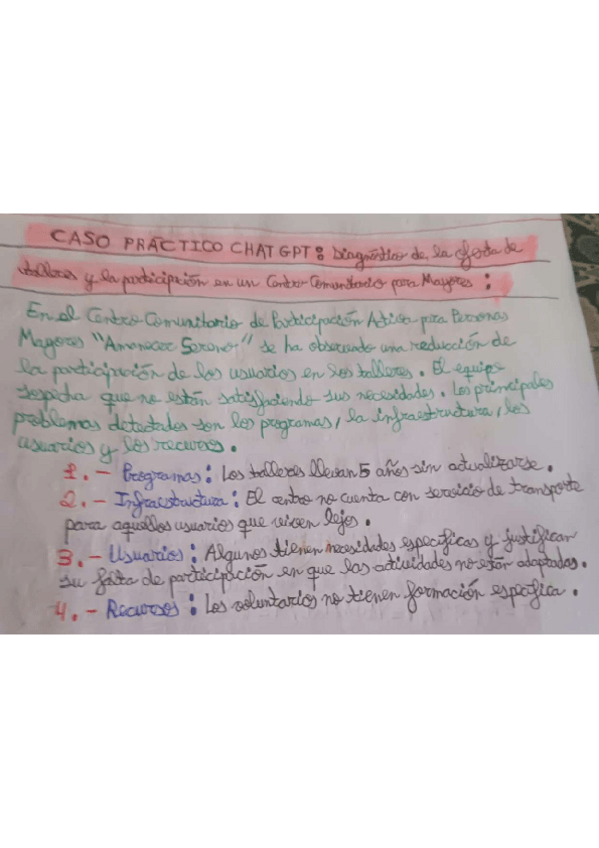 CASO PRÁCTICO CHAT GPT: Diagnóstico de la oferta de
talleres y la participación en un Centro Comunitario para Mayores:
En el Centro Comunitario de Participación Activa para Personas
Mayores "Amanecer Sereno" se ha observado una reducción de
la participación de los usuarios en los talleres. El equipo
sospecha que no están satisfaciendo sus necesidades. Los principales
problemas detectados son los programas, la infraestructura, los
usuarios y los recursos.
1.- Programas: Los talleres llevan 5 años sin actualizarse.
2.- Infraestructura: El centro no cuenta con servicio de transporte
para aquellos usuarios que viven lejos.
3.- Usuarios: Algunos tienen necesidades específicas y justifican
su falta de participación en que las actividades no están adaptadas.
4.- Recursos: Los voluntarios no tienen formación específica.